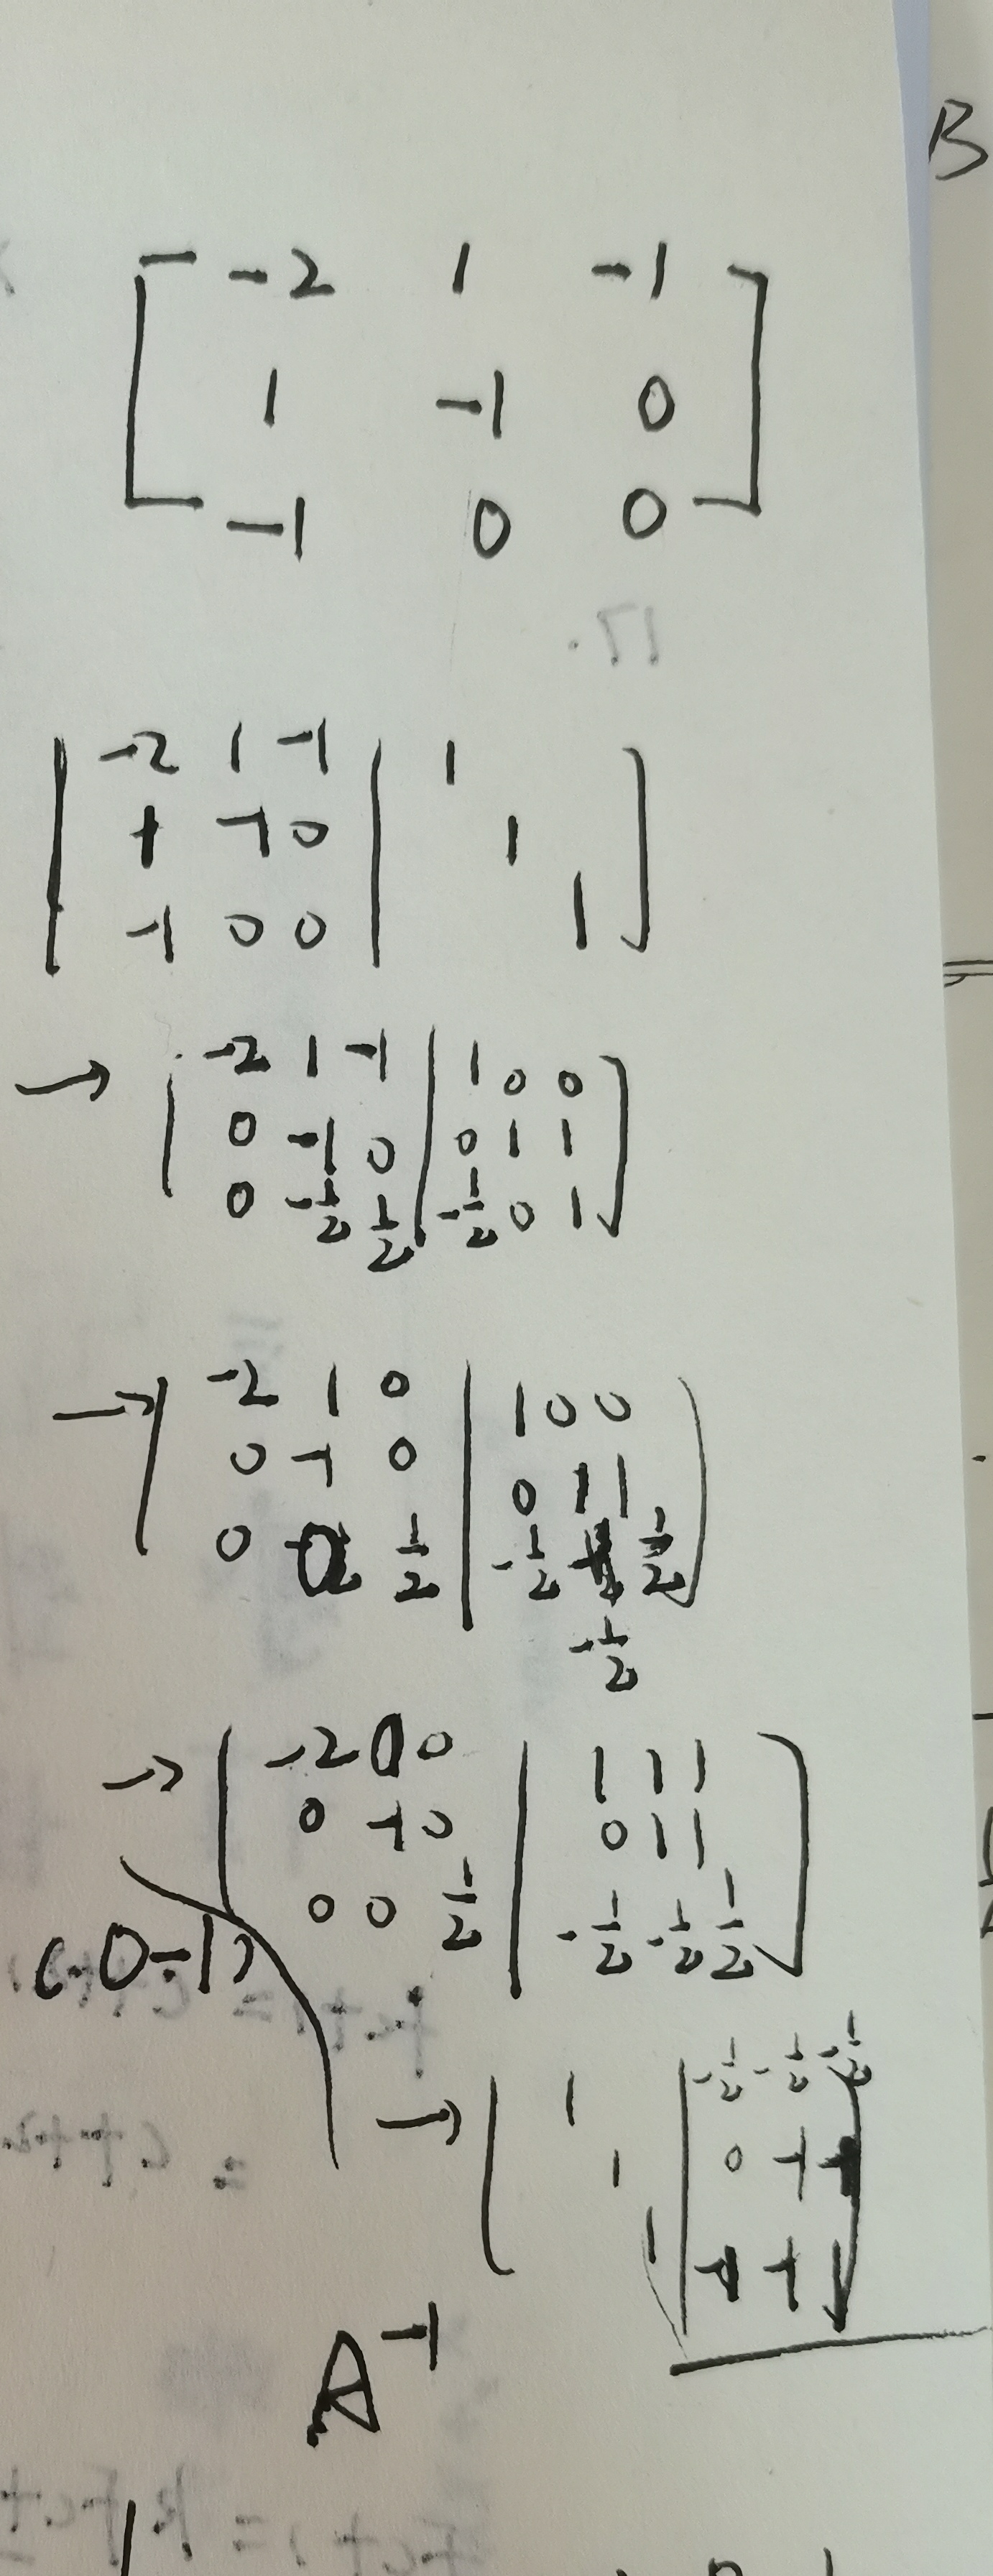 B
-2 1 -1
1 -1 0
-1 0 0
17.
-2 1 -1 | 1
1 -1 0 | 1
-1 0 0 | 1
→ -2 1 -1 | 1 0 0
0 -1 0 | 0 1 1
0 -1/2 1/2 | -1/2 0 1
→ -2 1 0 | 1 0 0
0 -1 0 | 0 1 1
0 0 1/2 | -1/2 1/2
-1/2
→ -2 0 0 | 1 1 1
0 -1 0 | 0 1 1
0 0 1/2 | -1/2 -1/2 1/2
→ 1 | -1/2 -1/2 -1/2
1 | 0 -1 -1
1 | -1 -1 1
A⁻¹